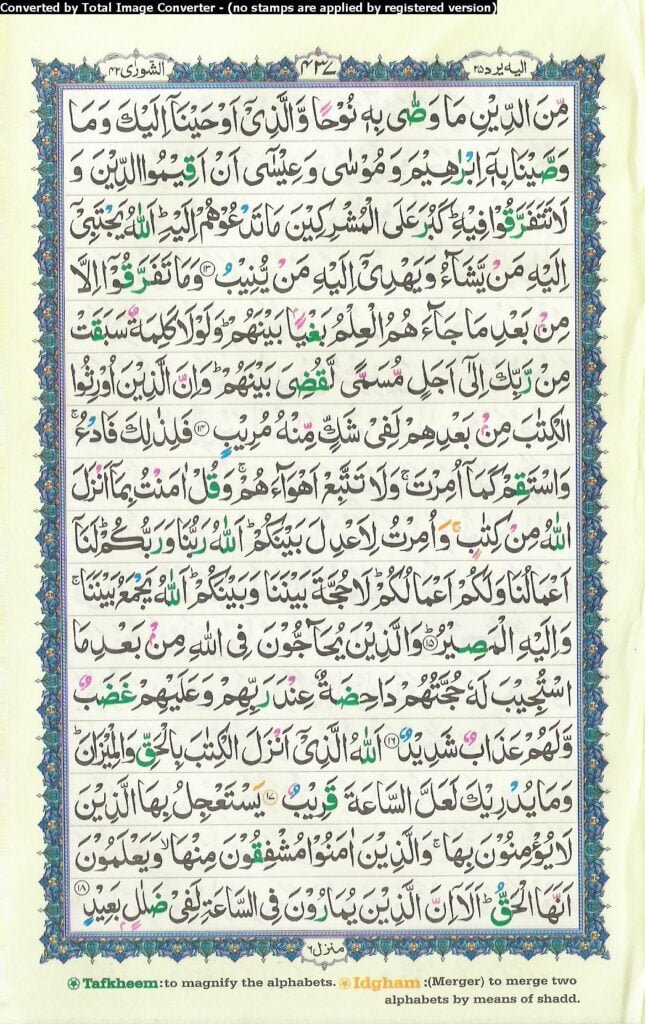 Converted by Total Image Converter - (no stamps are applied by registered version)
الیه یرد ۲۵
۴۳۷
الشورٰی ۴۲
مِّنَ الدِّيْنِ مَا وَصّٰى بِهٖ نُوْحًا وَّالَّذِيْٓ اَوْحَيْنَآ اِلَيْكَ وَمَا
وَصَّيْنَا بِهٖٓ اِبْرٰهِيْمَ وَمُوْسٰى وَعِيْسٰٓى اَنْ اَقِيْمُوا الدِّيْنَ وَ
لَا تَتَفَرَّقُوْا فِيْهِ ؕ كَبُرَ عَلَى الْمُشْرِكِيْنَ مَا تَدْعُوْهُمْ اِلَيْهِ ؕ اَللّٰهُ يَجْتَبِيْٓ
اِلَيْهِ مَنْ يَّشَآءُ وَيَهْدِيْٓ اِلَيْهِ مَنْ يُّنِيْبُ ۝۱۳ وَمَا تَفَرَّقُوْٓا اِلَّا
مِنْۢ بَعْدِ مَا جَآءَهُمُ الْعِلْمُ بَغْيًاۢ بَيْنَهُمْ ؕ وَلَوْلَا كَلِمَةٌ سَبَقَتْ
مِنْ رَّبِّكَ اِلٰٓى اَجَلٍ مُّسَمًّى لَّقُضِيَ بَيْنَهُمْ ؕ وَاِنَّ الَّذِيْنَ اُوْرِثُوا
الْكِتٰبَ مِنْۢ بَعْدِهِمْ لَفِيْ شَكٍّ مِّنْهُ مُرِيْبٍ ۝۱۴ فَلِذٰلِكَ فَادْعُ ۚ
وَاسْتَقِمْ كَمَآ اُمِرْتَ ۚ وَلَا تَتَّبِعْ اَهْوَآءَهُمْ ۚ وَقُلْ اٰمَنْتُ بِمَآ اَنْزَلَ
اللّٰهُ مِنْ كِتٰبٍ ۚ وَاُمِرْتُ لِاَعْدِلَ بَيْنَكُمْ ؕ اَللّٰهُ رَبُّنَا وَرَبُّكُمْ ؕ لَنَآ
اَعْمَالُنَا وَلَكُمْ اَعْمَالُكُمْ ؕ لَا حُجَّةَ بَيْنَنَا وَبَيْنَكُمْ ؕ اَللّٰهُ يَجْمَعُ بَيْنَنَا ۚ
وَاِلَيْهِ الْمَصِيْرُ ؕ۝۱۵ وَالَّذِيْنَ يُحَآجُّوْنَ فِي اللّٰهِ مِنْۢ بَعْدِ مَا
اسْتُجِيْبَ لَهٗ حُجَّتُهُمْ دَاحِضَةٌ عِنْدَ رَبِّهِمْ وَعَلَيْهِمْ غَضَبٌ
وَّلَهُمْ عَذَابٌ شَدِيْدٌ ۝۱۶ اَللّٰهُ الَّذِيْٓ اَنْزَلَ الْكِتٰبَ بِالْحَقِّ وَالْمِيْزَانَ ؕ
وَمَا يُدْرِيْكَ لَعَلَّ السَّاعَةَ قَرِيْبٌ ۝۱۷ يَسْتَعْجِلُ بِهَا الَّذِيْنَ
لَا يُؤْمِنُوْنَ بِهَا ۚ وَالَّذِيْنَ اٰمَنُوْا مُشْفِقُوْنَ مِنْهَا ۙ وَيَعْلَمُوْنَ
اَنَّهَا الْحَقُّ ؕ اَلَآ اِنَّ الَّذِيْنَ يُمَارُوْنَ فِي السَّاعَةِ لَفِيْ ضَلٰلٍۭ بَعِيْدٍ ۝۱۸
منزل ۶
Tafkheem:to magnify the alphabets. Idgham :(Merger) to merge two
alphabets by means of shadd.